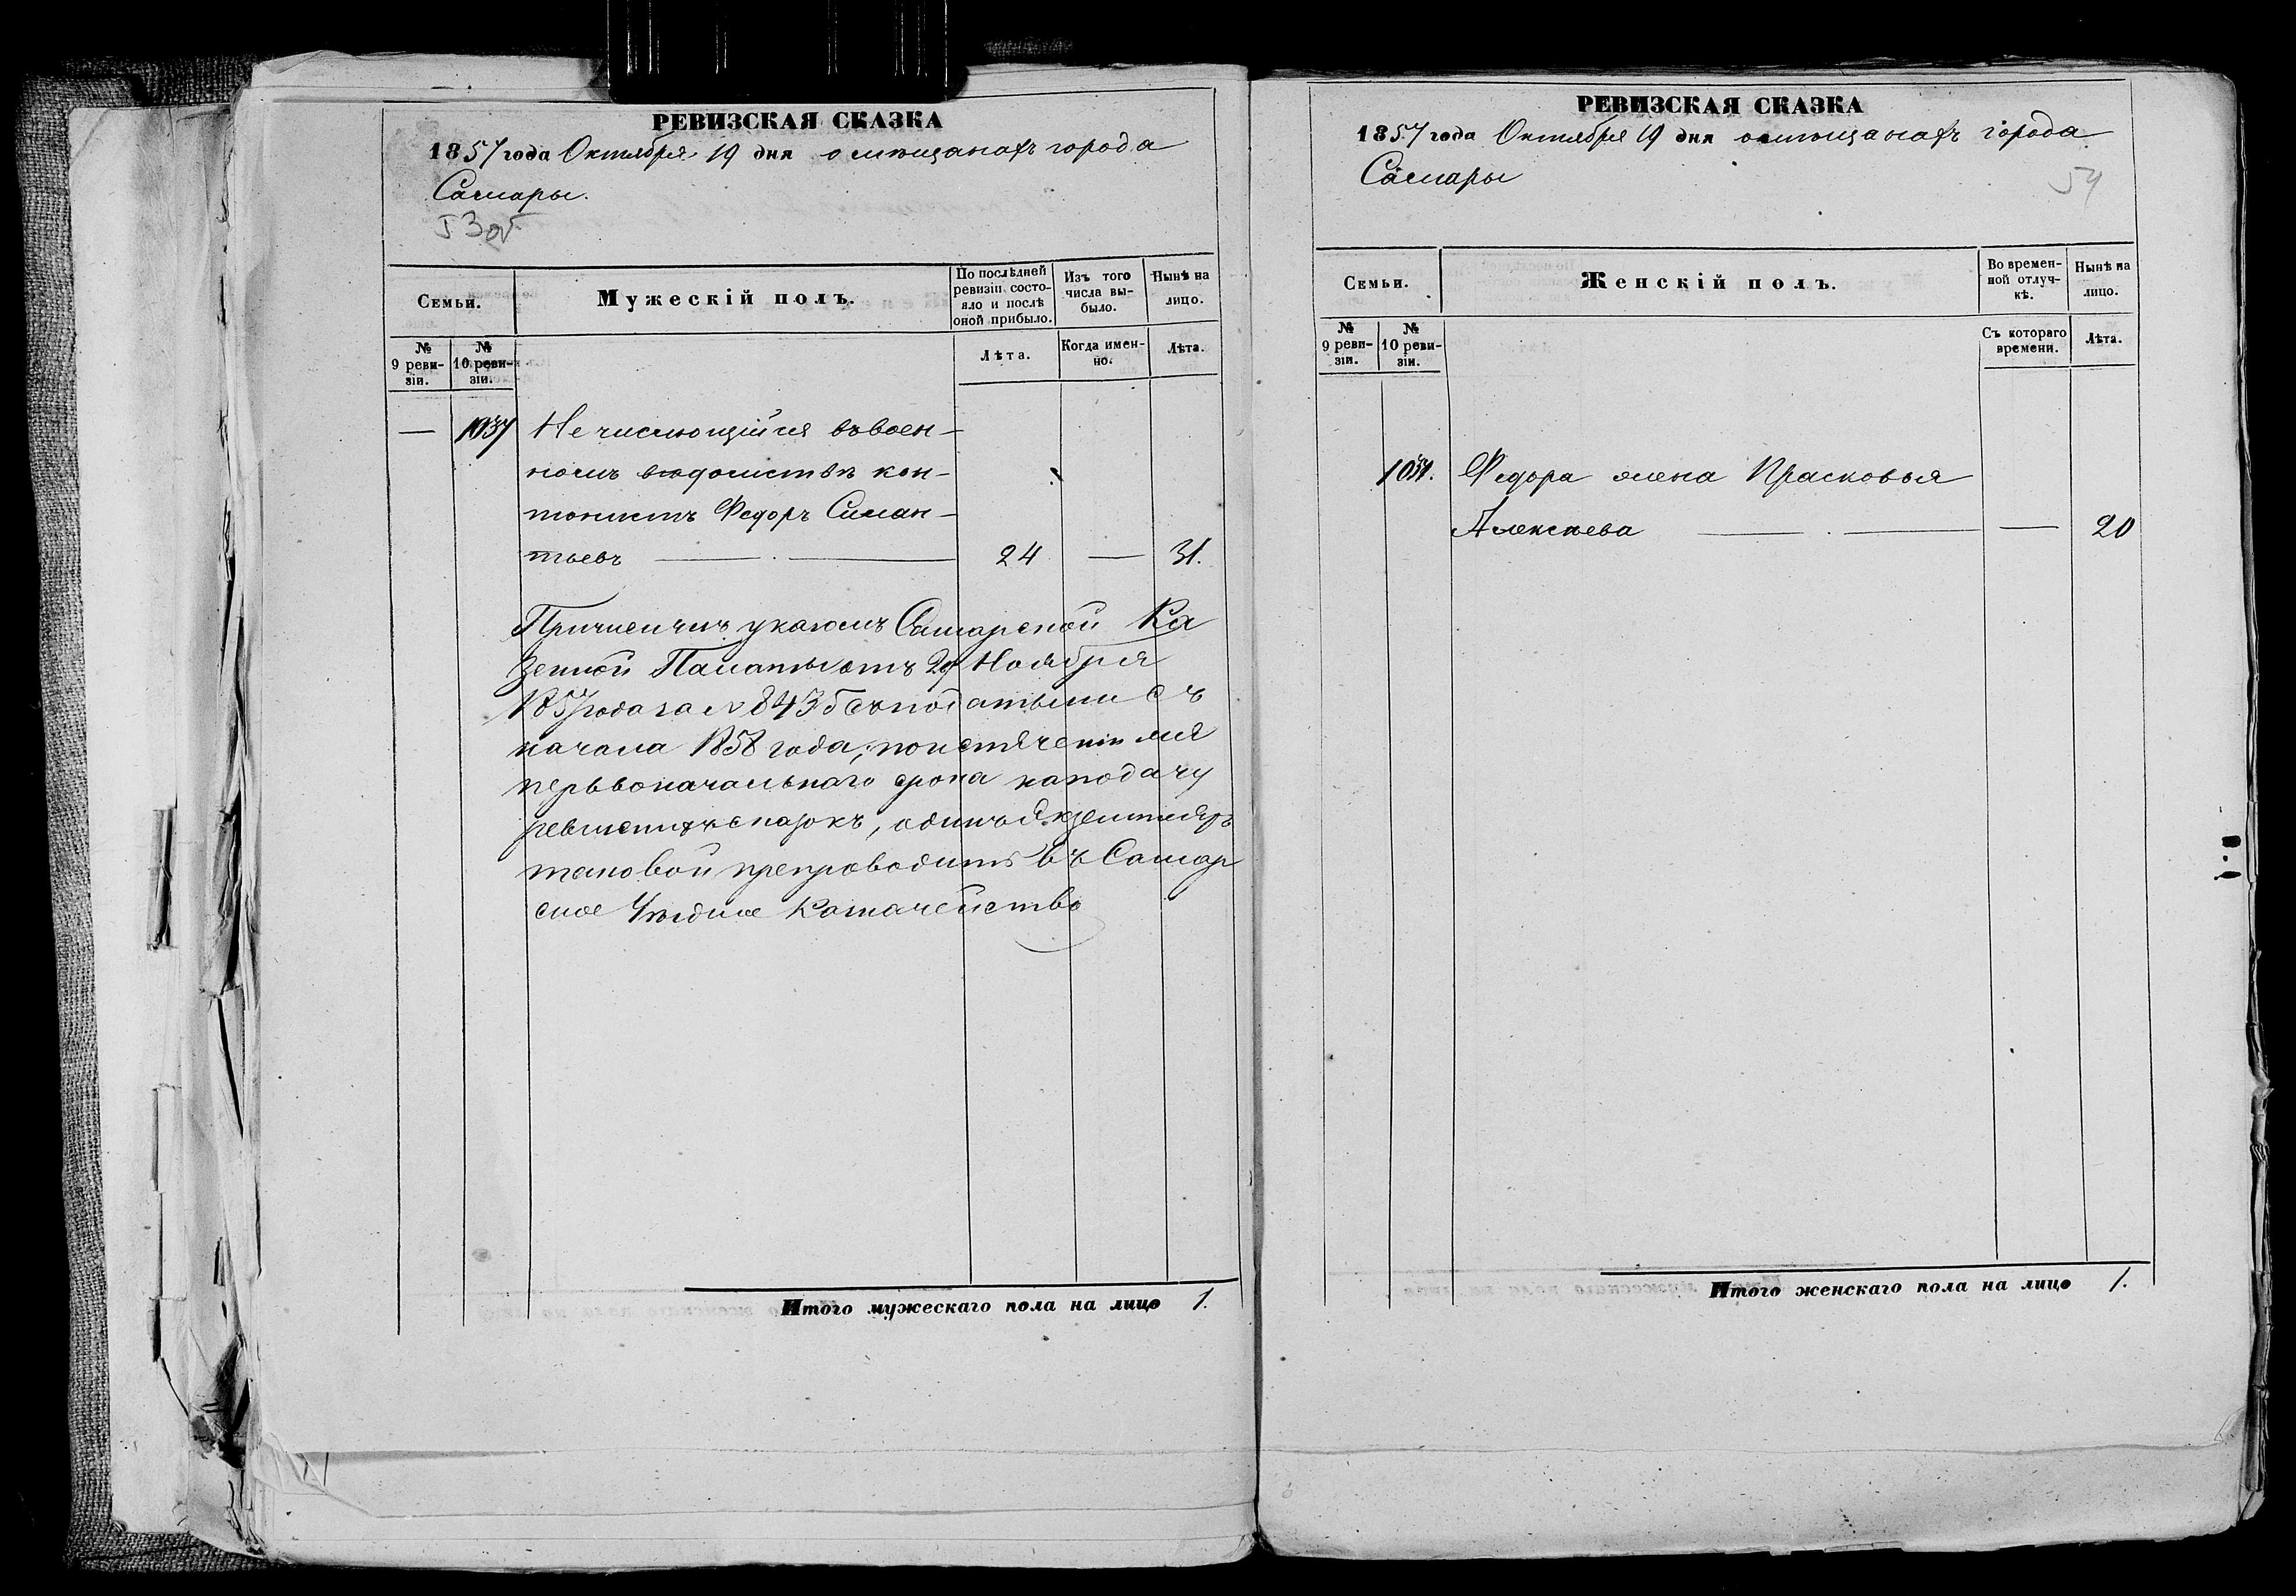 РЕВИЗСКАЯ СКАЗКА
1857 года Октября 19 дня о мѣщанахъ города
Самары.
53об
Семьи.
Мужескій полъ.
По послѣдней ревизіи состояло и послѣ оной прибыло.
Изъ того числа выбыло.
Нынѣ на лицо.
№ 9 ревизіи.
№ 10 ревизіи.
Лѣта.
Когда именно.
Лѣта.
— 1037 Не числющійся въ воен-
номъ вѣдомствѣ кон-
тонистъ Федоръ Силан-
тьевъ — 24 — 31.
Причисленъ указомъ Самарской Ка
зенной Палаты отъ 29 Ноября
1857 года за № 843 съ податьми съ
начала 1858 года, по истеченіи
первоначальнаго срока на подачу
ревизскихъ сказокъ, одинъ экземпляръ
таковой препроводить въ Самар
ское Уѣздное Казначейство
Итого мужескаго пола на лицо 1.
РЕВИЗСКАЯ СКАЗКА
1857 года Октября 19 дня о мѣщанахъ города
Самары
54
Семьи.
Женскій полъ.
Во временной отлучкѣ.
Нынѣ на лицо.
№ 9 ревизіи.
№ 10 ревизіи.
Съ котораго времени.
Лѣта.
1037. Федора жена Прасковья
Алексѣева — — 20
Итого женскаго пола на лицо 1.